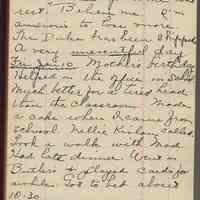 rest" "Believe me I'm
anxious to lose more
The Duke has been shipped
A very uneventful day
Fri Jan 10 Mother's birthday
Helped in the office in school
Much better for a tired head
than the classroom Made
a cake when I came from
school. Nellie called.
Took a walk with Mad.
Had late dinner. Went in
Butler's & played cards for
awhile. Got to bed about
10-30